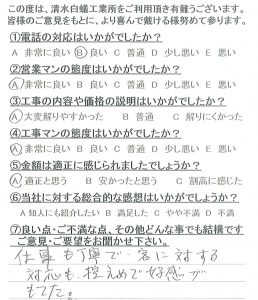 この度は、清水白蟻工業所をご利用頂き有難うございます。
皆様のご意見をもとに、より喜んで戴ける様努めて参ります。
①電話の対応はいかがでしたか？
A 非常に良い B 良い C 普通 D 少し悪い E 悪い
②営業マンの態度はいかがでしたか？
A 非常に良い B 良い C 普通 D 少し悪い E 悪い
③工事の内容や価格の説明はいかがでしたか？
A 大変解りやすかった B 普通 C 解りにくかった
④工事マンの態度はいかがでしたか？
A 非常に良い B 良い C 普通 D 少し悪い E 悪い
⑤金額は適正に感じられましたでしょうか？
A 適正と思う B 安かったと思う C 割高に感じた
⑥当社に対する総合的な感想はいかがでしょうか？
A 知人にも紹介したい B 満足した C やや不満 D 不満
⑦良い点・ご不満な点、その他どんな事でも結構です
ご意見・ご要望をお聞かせ下さい。
仕事も丁寧で、客に対する
対応も、控えめで好感が
もてた。